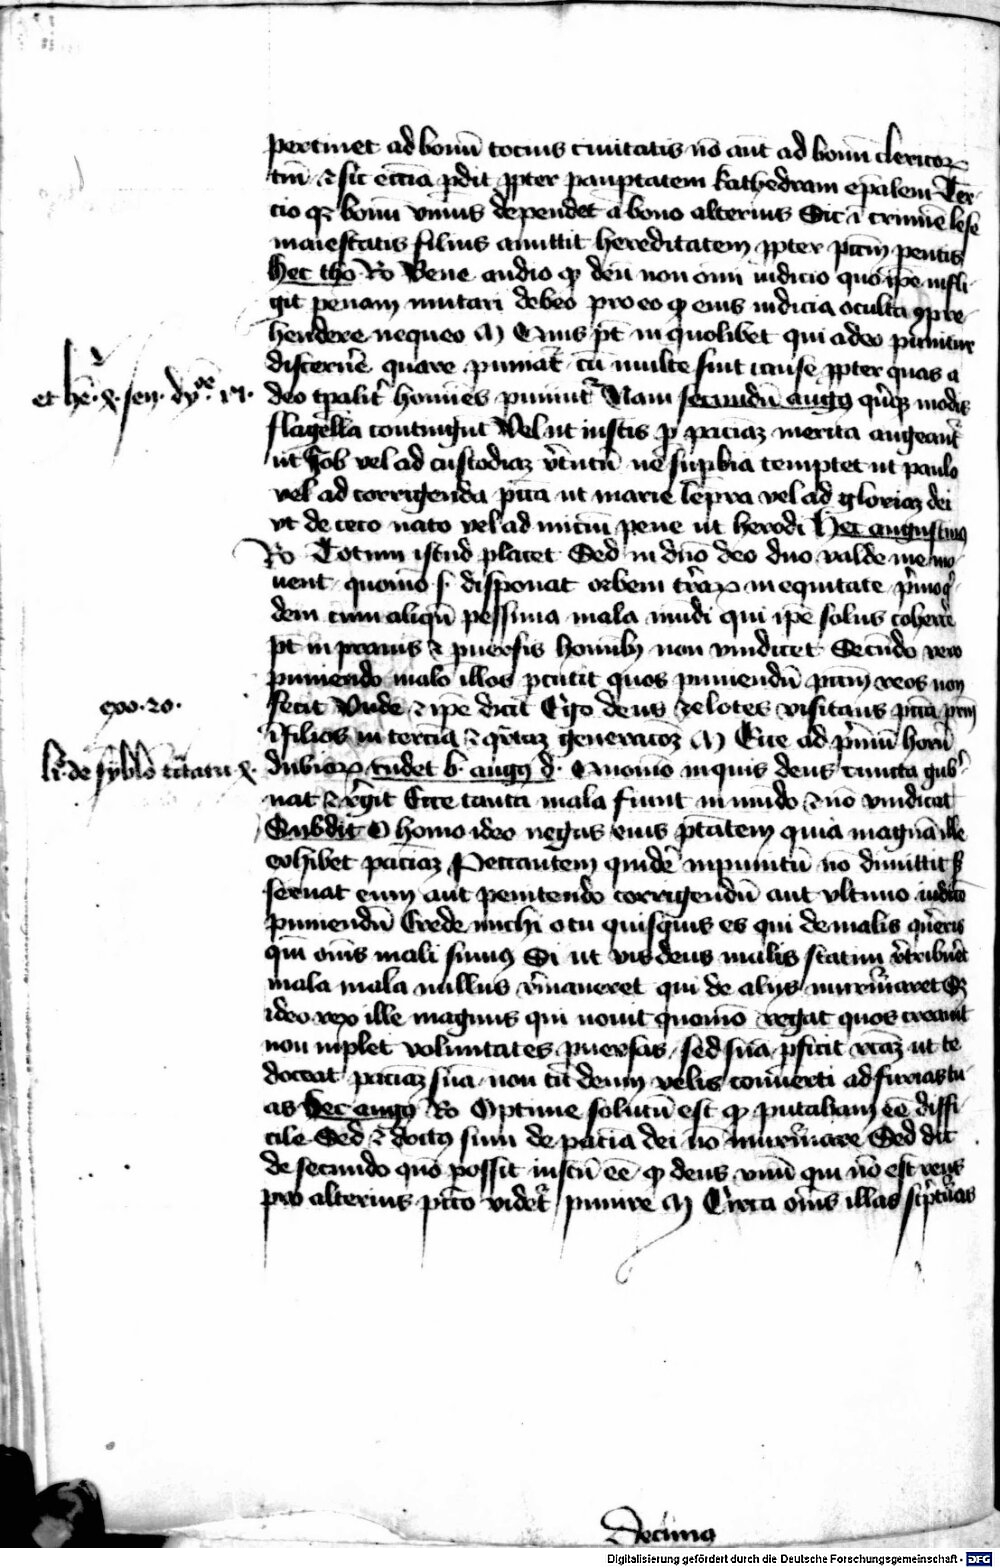 pertinet ad bonū tocius ciuitatis nō aūt ad bonū clericoꝝ
tm̄ ⁊ sic eccīa ꝑdit ꝓpter pauptatem kathedram epālem Ter
cio qꝫ bonū vnius dependet a bono alterius Sic ī crimīe lese
maiestatis filius amittit hereditatem ꝓpter pctm̄ pentis
hec tho Ro Bene audio ꝙ deū non omī iudicio quo ipē infli
git penam mutari debeo pro eo ꝙ eius iudicia occulta ꝯpre
hendere nequeo M Cuius pt̄ in quolibet qui a deo punitur
discernē quare puniat̄ cū multe sint cause ꝓpter quas a
et hē . x . sen . dy . 17 .
deo tꝑalit̄ homīes puniūt̄ Nam secundū augꝯ quīqꝫ modis
flagella contingūt Vel ut iustis ꝑ paciāꝫ merita augeant̄
ut Job vel ad custodiaꝫ v̄tutū ne supbia temptet ut paulo
vel ad corrigenda pctā ut marie lepra vel ad gloriaꝫ dei
vt de ceco nato vel ad iniciū pene ut herodi Hec augustinꝯ
Ro Totum istud placet Sed in dn̄o deo duo valde me mo
uent quomō s disponat orbem t̄raꝝ in equitate p̄mo q
dem cum aliqn̄ pessima mala mūdi qui ipē solus cohercē
pt̄ in prauis ⁊ puersis homībꝫ non vindicet Secūdo vero
puniendo malo illos pcutit quos puniendū pctm̄ reos non
exo . 20 .
fecit Vnde ⁊ ipē dicit Ego deus zelotes visitans pctā prm̄
ī filios in terciā ⁊ q̄rtaꝫ generacōꝫ M Ecce ad p̄mū horū
li . de symbō tctatu x .
dubioꝝ rūdet b . augꝯ d . Quomō inquis deus cuncta gub
nat ⁊ regit Ecce tanta mala fiunt in mūdo ⁊ nō vindicat
Subdit O homo ideo negas eius ptātem quia magnā ille
exhibet paciāꝫ Peccantem quidē inpunitū nō dimittit sꝫ
seruat eum aut penitendo corrigendū aut vltimo iudicō
puniendū Crede michi o tu quisquis es qui de malis q̄reris
qm̄ om̄s mali sumꝯ Si ut vis deus malis statim r̄tribuēt
mala mala nullus r̄maneret qui de alijs murm̄aret Sꝫ
ideo rex ille magnus qui nouit quomō regat quos creauit
non inplet voluntates puersas sed suā pficit rcāꝫ ut te
doceat paciāꝫ suā non tn̄ deum velis conuerti ad furias tu
as Hec augꝯ Ro Optime solutū est ꝙ putabam eē diffi
cile Sed ⁊ doctꝯ sum de paciā dei nō murm̄are Sed dic
de secundo quō possit iustū eē ꝙ deus vnū qui nō est reus
pro alterius pctō videt̄ punire M Circa om̄s illas sc̄pturas
Decimꝯ
Digitalisierung gefördert durch die Deutsche Forschungsgemeinschaft - DFG